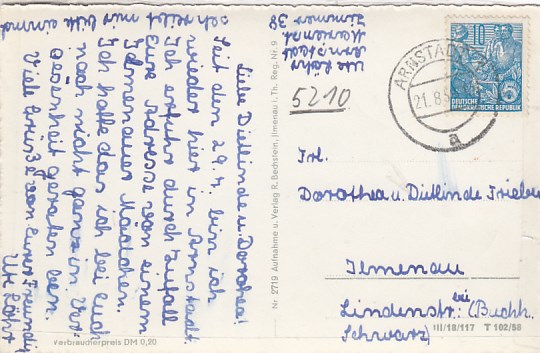 Liebe Dietlinde u. Dorothea!
Seit den 29.7. bin ich
wieder hier in Arnstadt.
Ich erfuhr durch Zufall
Eure Adresse von einem
Ilmenauer Mädchen.
Ich hoffe das ich bei Euch
noch nicht ganz in Ver-
gessenheit geraten bin.
Viele Grüße von Eurer Freundin
Ute Löhr
schreibt mir bitte einmal
Ute Löhr
Arnstadt
Zimmer 38
5210
ARNSTADT
21.8.5
a
10
DEUTSCHE
DEMOKRATISCHE REPUBLIK
Frl.
Dorothea u. Dietlinde
Ilmenau
Lindenstr. (bei
Buchh.
Schwarz)
III/18/117 T 102/58
Nr. 2719 Aufnahme u. Verlag R. Bechstein, Ilmenau i. Th. Reg. Nr. 9
Verbraucherpreis DM 0,20